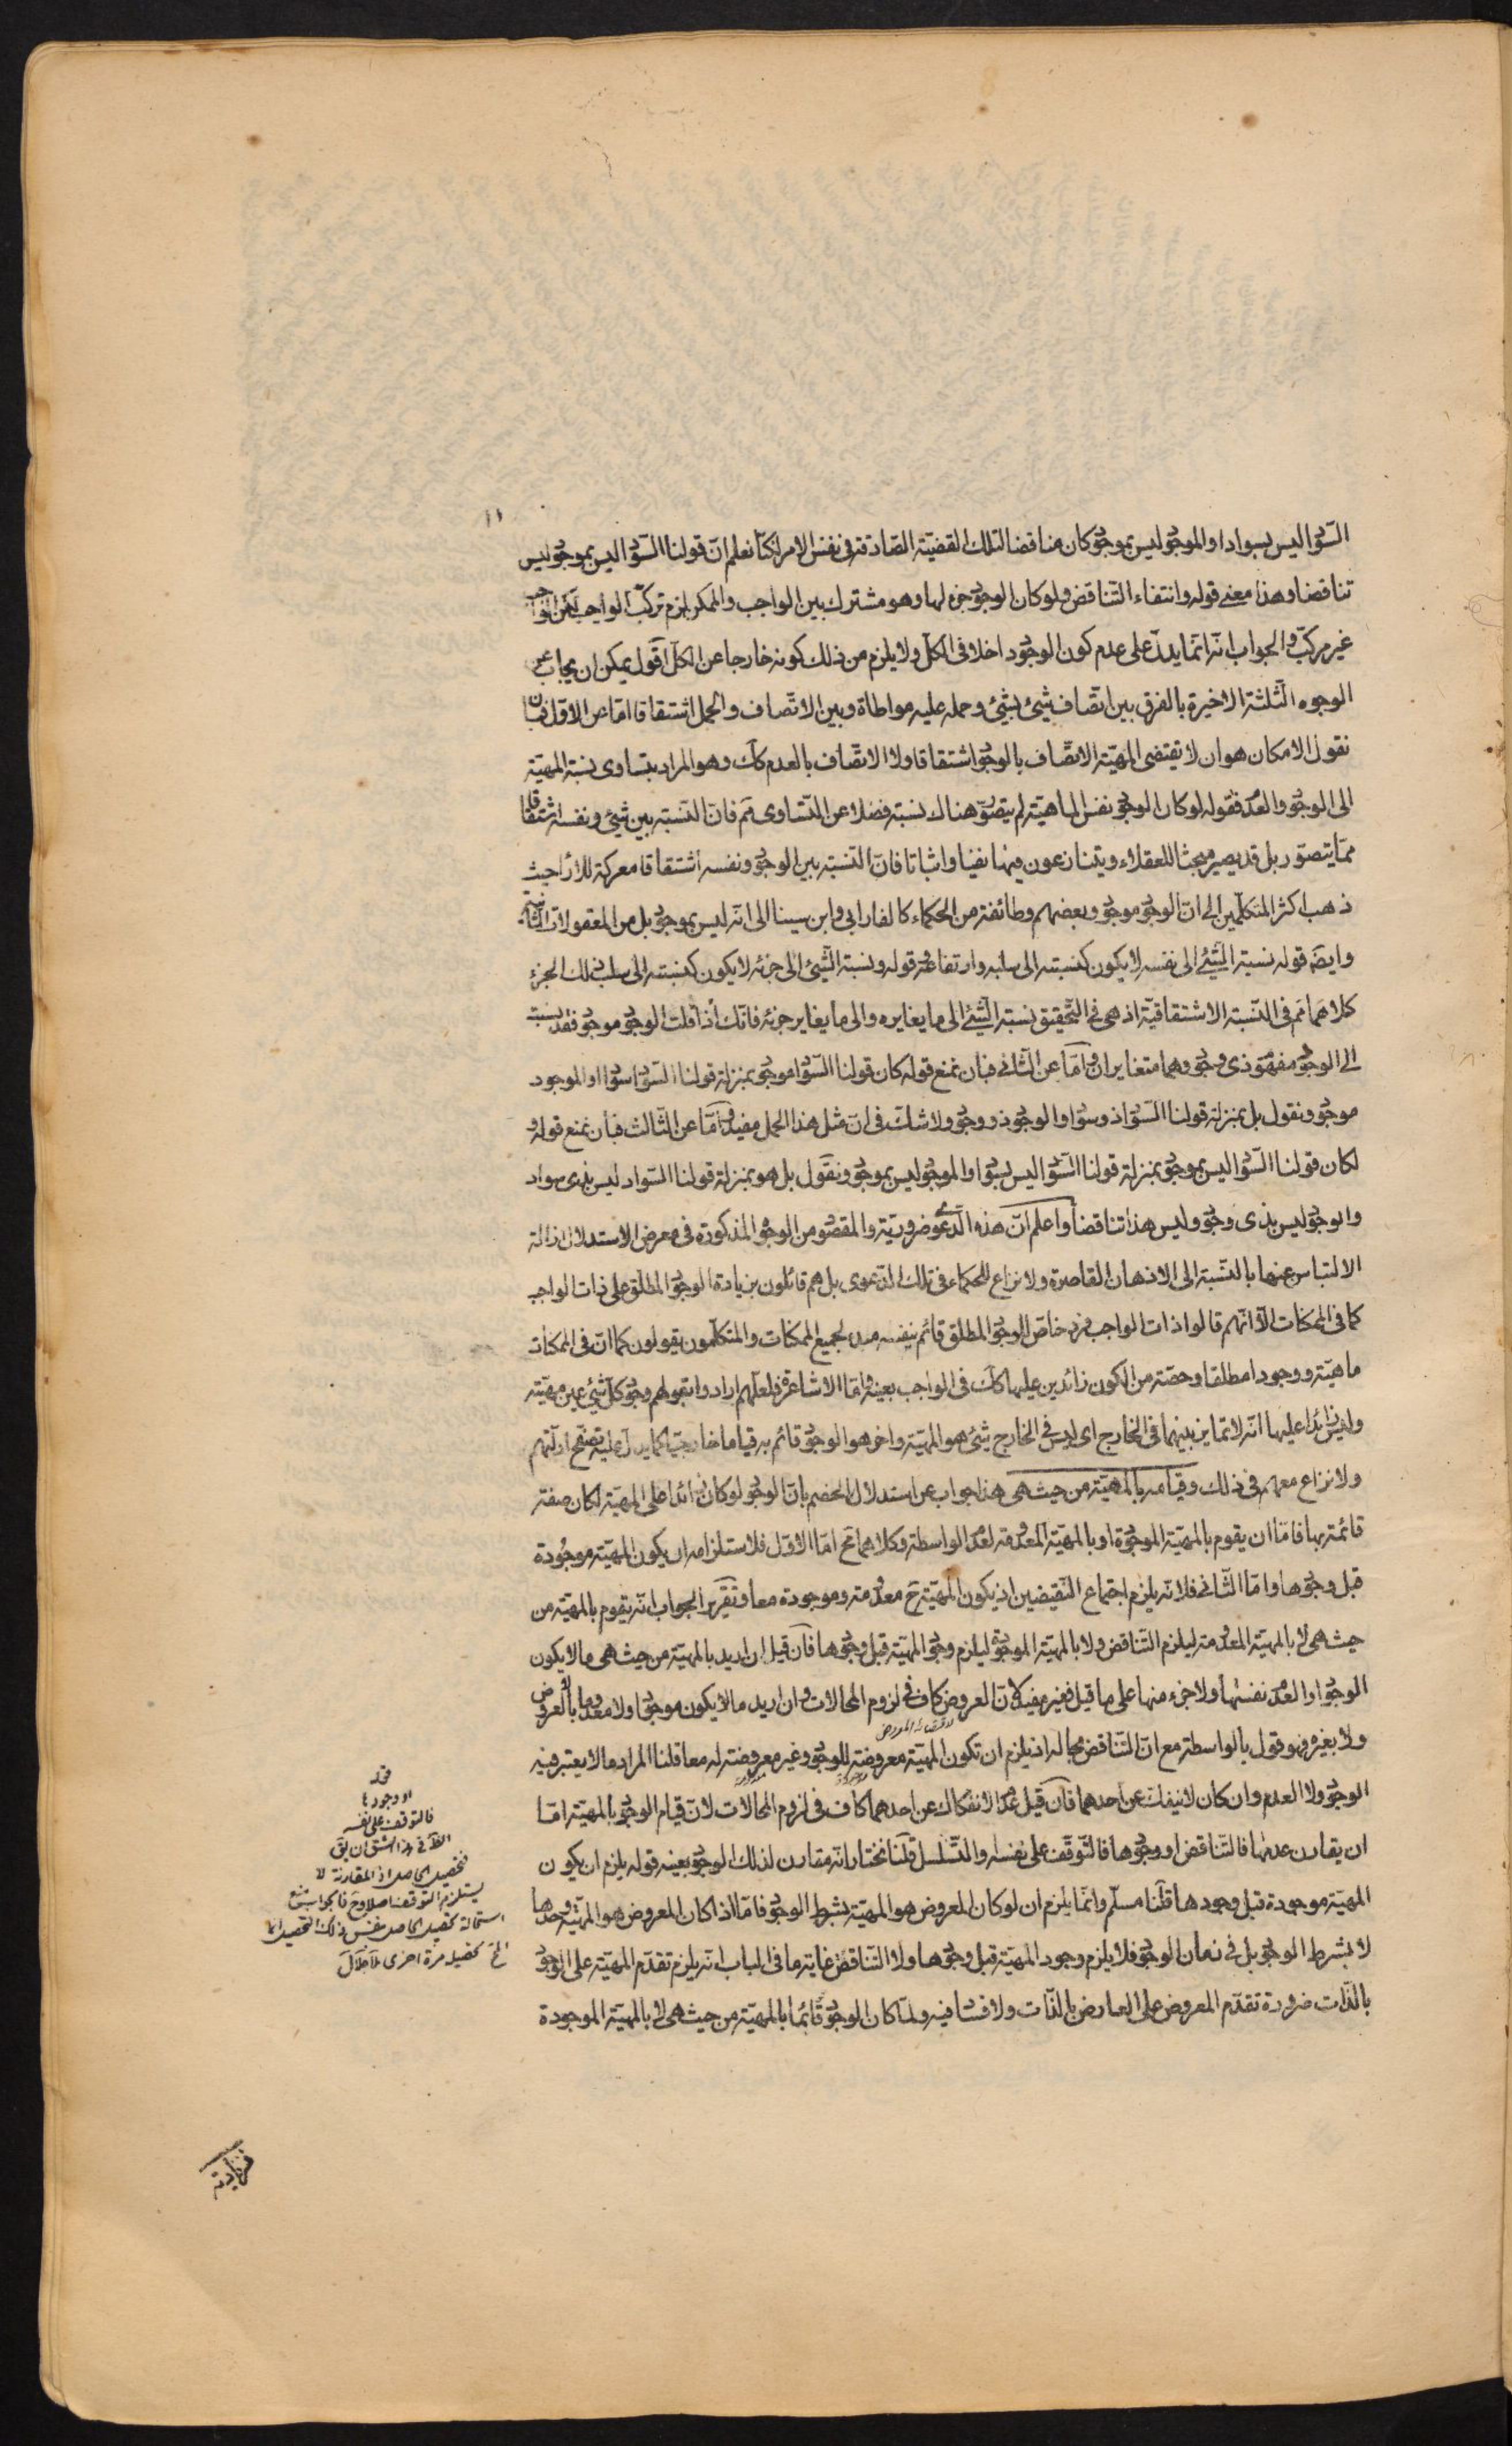 ١١
السّواد ليس بسواد او الموجود ليس بموجود كان مناقضا لتلك القضيّة الصّادقة فى نفس الامر لكنّا نعلم انّ قولنا السّواد ليس بموجود ليس
تناقضا وهذا معنى قوله وانتفاء التّناقض ولو كان الوجود جزء لها وهو مشترك بين الواجب والممكن لزم تركّب الواجب
غير مركّب والجواب انّه انّما يدلّ على عدم كون الوجود داخلا فى الكلّ ولا يلزم من ذلك كونه خارجا عن الكلّ اقول يمكن ان يجاب عن
الوجوه الثّلثة الاخيرة بالفرق بين اتّصاف شئ بشئ وحمله عليه مواطاة وبين الاتّصاف والحمل اشتقاقا امّا عن الاوّل فبان
نقول الامكان هو ان لا يقتضى المهيّة الاتّصاف بالوجود اشتقاقا ولا الاتّصاف بالعدم كك وهو المراد بتساوى نسبة المهيّة
الى الوجود والعدم فقوله لو كان الوجود نفس الماهيّة لم يتصوّر هناك نسبة فضلا عن التّساوى مم فانّ النّسبة بين شئ ونفسه اشتقاقا
ممّا يتصوّر بل قد يصير مبحثا للعقلاء ويتنازعون فيها نفيا واثباتا فانّ النّسبة بين الوجود ونفسه اشتقاقا معركة للاراء حيث
ذهب اكثر المتكلّمين الى انّ الوجود موجود وبعضهم وطائفة من الحكماء كالفارابى وابن سينا الى انّه ليس بموجود بل من المعقولات الثّانية
وايضا قوله نسبة الشّئ الى نفسه لا يكون كنسبته الى سلبه وارتفاعه وقوله ونسبة الشّئ الى جزئه لا يكون كنسبته الى سلب ذلك الجزء
كلاهما مم فى النّسبة الاشتقاقيّة اذ هى فى التّحقيق نسبة الشّئ الى ما يغايره والى ما يغاير جزئه فانّك اذا قلت الوجود موجود فقد نسبت
الى الوجود مفهوم ذى وجود وهما متغايران وامّا عن الثّانى فبان نمنع قوله كان قولنا السّواد موجود بمنزلة قولنا السّواد سواد او الموجود
موجود ونقول بل بمنزلة قولنا السّواد ذو سواد او الوجود ذو وجود ولا شكّ فى انّ مثل هذا الحمل مفيد وامّا عن الثّالث فبان نمنع قوله و
لكان قولنا السّواد ليس بموجود بمنزلة قولنا السّواد ليس بسواد او الموجود ليس بموجود ونقول بل هو بمنزلة قولنا السّواد ليس بذى سواد
والوجود ليس بذى وجود وليس هذا تناقضا واعلم انّ هذه الدّعوى ضروريّة والمقصود من الوجوه المذكورة فى معرض الاستدلال ازالة
الالتباس عنها بالنّسبة الى الاذهان القاصرة ولا نزاع للحكماء فى تلك الدّعوى بل هم قائلون بزيادة الوجود المطلق على ذات الواجب
كما فى الممكنات الّا انّهم قالوا ذات الواجب فرد خاصّ للوجود المطلق قائم بنفسه مبدء لجميع الممكنات والمتكلّمون يقولون كما انّ فى الممكنات
ماهيّة ووجودا مطلقا وحصّة من الكون زائدين عليها كك فى الواجب بعينه وامّا الاشاعرة فلعلّهم ارادوا بقولهم وجود كلّ شئ عين مهيّته
وليس زائدا عليها انّه لا تمايز بينهما فى الخارج اى ليس فى الخارج شئ هو المهيّة واخر هو الوجود قائم به قياما خارجيّا كما يدلّ عليه تصفّح ادلّتهم
ولا نزاع معهم فى ذلك وقيامه بالمهيّة من حيث هى هذا جواب عن استدلال الخصم بانّ الوجود لو كان زائدا على المهيّة لكان صفة
قائمة بها فامّا ان يقوم بالمهيّة الموجودة او بالمهيّة المعدومة لعدم الواسطة وكلاهما مح امّا الاوّل فلاستلزامه ان يكون المهيّة موجودة
قبل وجودها وامّا الثّانى فلانّه يلزم اجتماع النّقيضين اذ يكون المهيّة ح معدومة وموجودة معا وتقرير الجواب انّه يقوم بالمهيّة من
حيث هى لا بالمهيّة المعدومة ليلزم التّناقض ولا بالمهيّة الموجودة ليلزم وجود المهيّة قبل وجودها فان قيل ان اريد بالمهيّة من حيث هى ما لا يكون
الوجود او العدم نفسها ولا جزء منها على ما قيل فغير مفيد لانّ العروض كاف فى لزوم المحالات وان اريد ما لا يكون موجودا ولا معدوما لا بالعروض
ولا بغيره فهو قول بالواسطة مع انّ التّناقض بحاله اذ يلزم ان تكون المهيّة معروضة للوجود وغير معروضة له معا قلنا المراد ما لا يعتبر فيه
الوجود ولا العدم وان كان لا ينفكّ عن احدهما فان قيل عدم الانفكاك عن احدهما كاف فى لزوم المحالات لانّ قيام الوجود بالمهيّة امّا
ان يقارن عدمها فالتّناقض او وجودها فالتّوقّف على نفسه او التّسلسل قلنا نختار انّه مقارن لذلك الوجود بعينه قوله يلزم ان يكون
المهيّة موجودة قبل وجودها قلنا مسلّم وانّما يلزم ان لو كان المعروض هو المهيّة بشرط الوجود فامّا اذا كان المعروض هو المهيّة وحدها
لا بشرط الوجود بل فى زمان الوجود فلا يلزم وجود المهيّة قبل وجودها ولا التّناقض غاية ما فى الباب انّه يلزم تقدّم المهيّة على الوجود
بالذّات ضرورة تقدّم المعروض على العارض بالذّات ولا فساد فيه ولمّا كان الوجود قائما بالمهيّة من حيث هى لا بالمهيّة الموجودة
او وجودها
فالتوقف على نفسه
فى هذا الشق ان يق
فتحصيل الحاصل اذ المقارنة لا
يستلزم التوقف اصلا وح فالجواب منع
استحالة تحصيل الحاصل بنفس ذلك التحصيل انما
المح تحصيله مرة اخرى
فزيادته